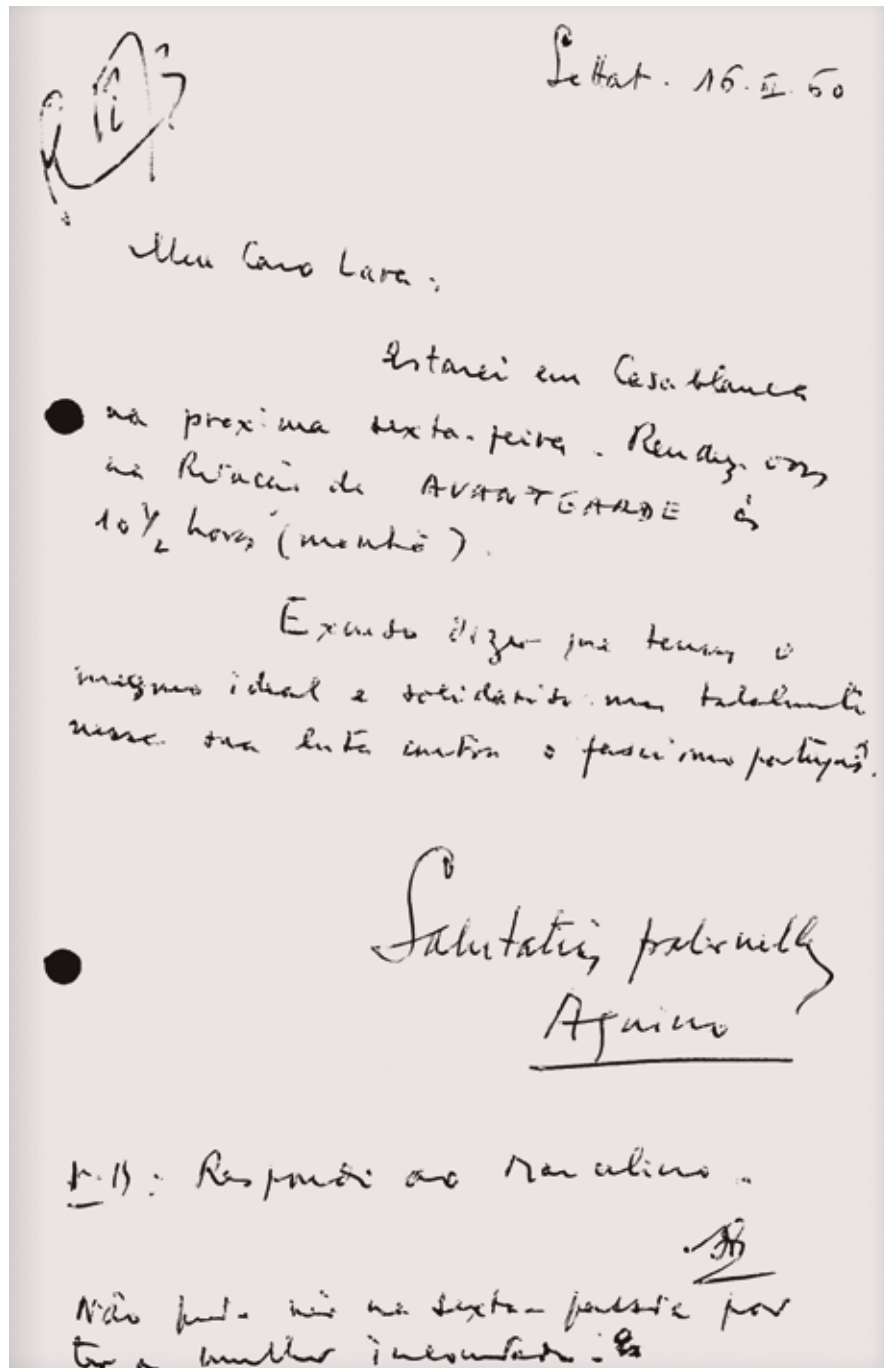 Settat. 16.II.60
Meu Caro Lara:
Estarei em Casablanca
na proxima sexta-feira. Rendez-vous
na Redacção de AVANTGARDE ás
10 1/2 horas (manhã).
Excuso dizer que temos o
mesmo ideal e solidariso-me totalmente
nessa sua luta contra o fascismo português.
Salutations fraternelles
Aquino
N.B: Respondi ao Marcelino.
Não pude vir na sexta-passada por
ter a mulher incomodada.